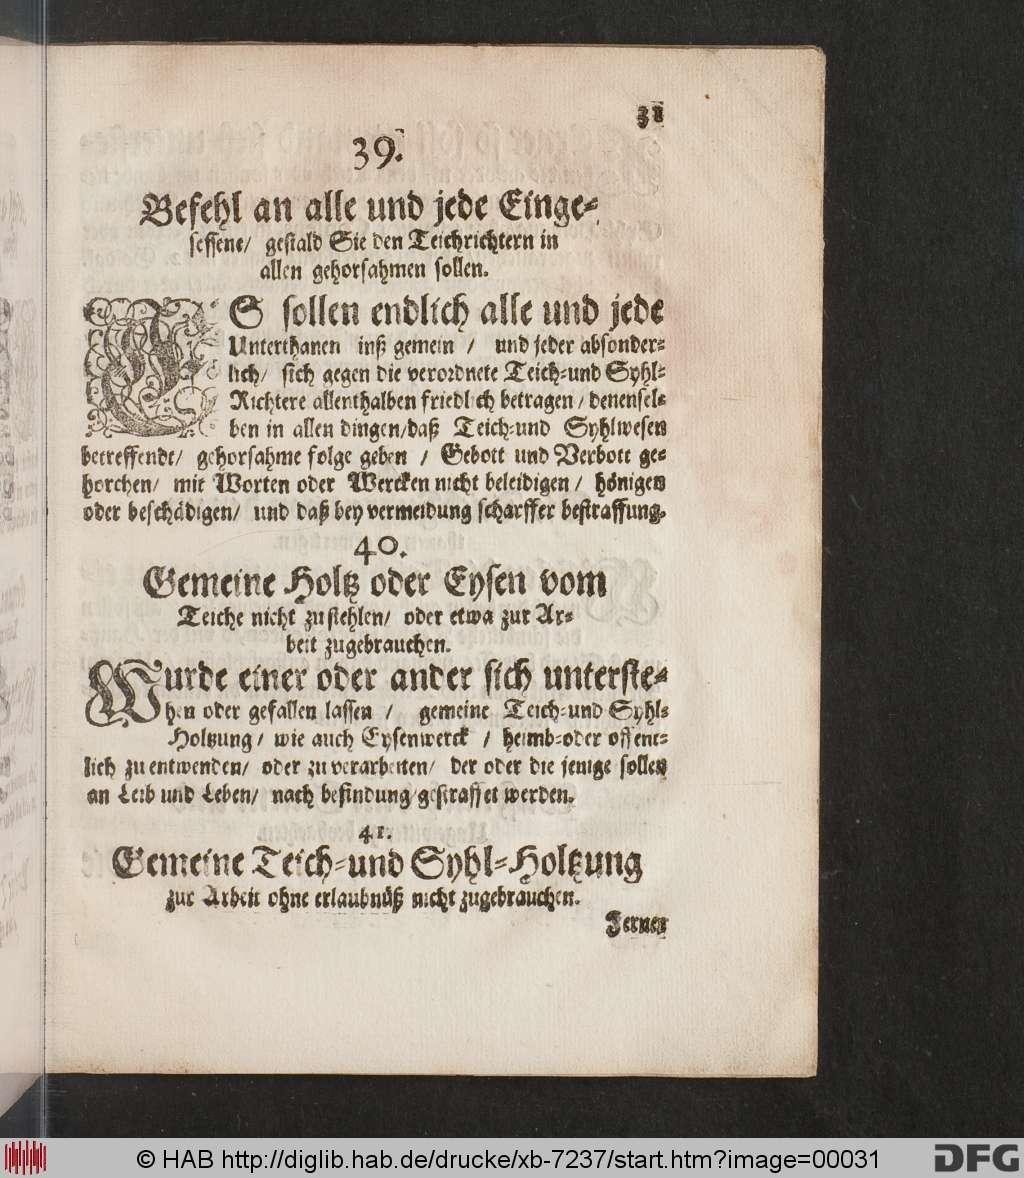 31
39.
Befehl an alle und jede Einge-
sessene/ gestald Sie den Teichrichtern in
allen gehorsahmen sollen.
ES sollen endlich alle und jede
Unterthanen inß gemein / und jeder absonder-
lich/ sich gegen die verordnete Teich-und Syhl-
Richtere allenthalben friedlich betragen/ denensel-
ben in allen dingen/daß Teich-und Syhlwesen
betreffendt/ gehorsahme folge geben / Gebott und Verbott ge-
horchen/ mit Worten oder Wercken nicht beleidigen/ hönigen
oder beschädigen/ und daß bey vermeidung scharffer bestraffung.
40.
Gemeine Holtz oder Eysen vom
Teiche nicht zustehlen/ oder etwa zur Ar-
beit zugebrauchen.
Wurde einer oder ander sich unterste-
hen oder gefallen lassen / gemeine Teich-und Syhl-
Holtzung/ wie auch Eysenwerck / heimb-oder offent-
lich zu entwenden/ oder zu verarbeiten/ der oder die jenige sollen
an Leib und Leben/ nach befindung gestraffet werden.
41.
Gemeine Teich-und Syhl-Holtzung
zur Arbeit ohne erlaubnüß nicht zugebrauchen.
Ferner
© HAB http://diglib.hab.de/drucke/xb-7237/start.htm?image=00031
DFG